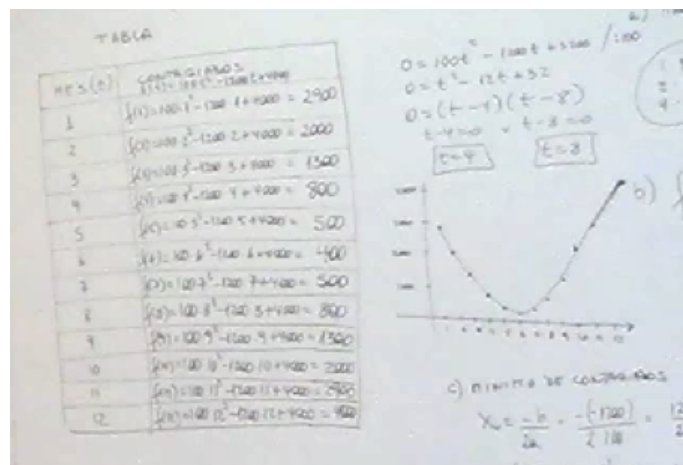 TABLA
MES(t) CONTAGIADOS
f(t)=100t²-1200t+4000
1 f(1)=100·1²-1200·1+4000 = 2900
2 f(2)=100·2²-1200·2+4000 = 2000
3 f(3)=100·3²-1200·3+4000 = 1300
4 f(4)=100·4²-1200·4+4000 = 800
5 f(5)=100·5²-1200·5+4000 = 500
6 400
7 f(7)=100·7²-1200·7+4000 = 500
8 f(8)=100·8²-1200·8+4000 = 800
9 f(9)=100·9²-1200·9+4000 = 1300
10 f(10)=100·10²-1200·10+4000 = 2000
11 f(11)=100·11²-1200·11+4000 = 2900
12 f(12)=100·12²-1200·12+4000 = 4000
0=100t²-1200t+3200 /:100
0=t²-12t+32
0=(t-4)(t-8)
t-4=0 t-8=0
t=4 t=8
b)
c) MINIMO DE CONTAGIADOS
Xv = -b/2a = -(-1200)/2·100 =